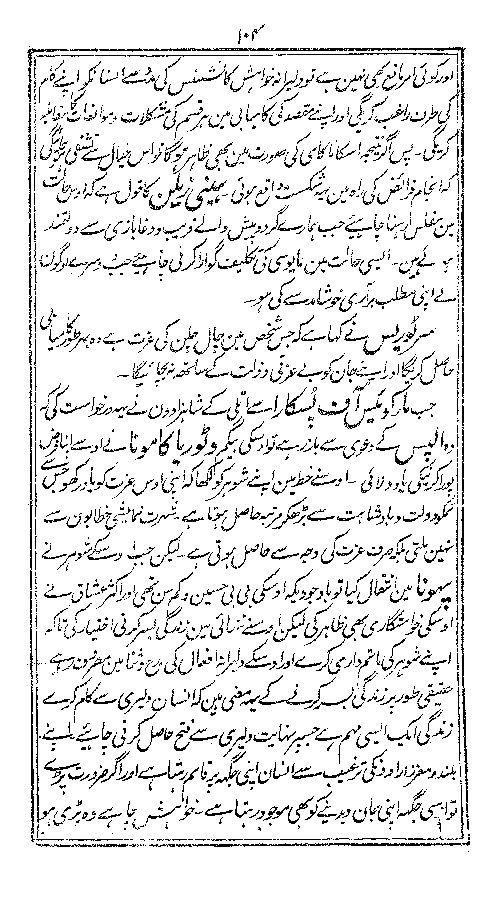 ۱۰۴
اور کوئی امر مانع بھی نہین ہے تو دلیرانہ خواہش کانشنس کی مدد سے انسانکو اپنے کام
کی طرف راغب کریگی اور اپنے مقصد کی کامیابی مین ہر قسم کی مشکلات و موانعات کا مقابلہ
کریگی۔ پس اگر نتیجہ اسکا ناکامی کی صورت مین بھی ظاہر ہوگا تو اس خیال سے تشفی ہو جائیگی
کہ انجام فرائض کی راہ مین یہ شکست واقع ہوئی۔ کا قول ہے کہ اوس حالت
مین مفلس رہنا چاہئے جب ہمارے گرد و پیش والے فریب و دغابازی سے دولتمند
ہوئے ہین۔ ایسی حالت مین مایوسی کی تکلیف گوارا کرنی چاہئے جب دوسرے لوگون
نے اپنی مطلب برآری خوشامد سے کی ہو۔
نے کہا ہے کہ جس شخص مین چال چلن کی عزت ہے وہ ہر طور کامیابی
حاصل کریگا اور اپنے جان کو بے عزتی و ذلت کے ساتھ نہ بچائیگا۔
جب مارکوئیس آف پسکارا سے اٹلی کے شاہزادون نے یہ درخواست کی کہ
وہ کے دعوی سے باز رہے تو اوسکی بی بی وٹوریا کلومنا نے اوسے اپنا فرض
پورا کرنیکی یاد دلائی۔ اوسنے خط مین اپنے شوہر کو لکھا کہ اپنی اوس عزت کو یاد رکھو جس سے
تمکو دولت و بادشاہت سے بڑھکر مرتبہ حاصل ہوتا ہے۔ شہرت نمایشی خطابون سے
نہین ملتی بلکہ صرف عزت کی وجہ سے حاصل ہوتی ہے۔ لیکن جب اوسکے شوہر نے
مین انتقال کیا تو باوجودیکہ اوسکی بی بی حسین و کم سن تھی اور اکثر عشاق نے
اوسکی خواستگاری بھی ظاہر کی لیکن اوسنے تنہائی مین زندگی بسر کرنی اختیار کی تاکہ
اپنے شوہر کی ماتم داری کرے اور اوسکے دلیرانہ افعال کی مدح و ثنا مین مصروف رہے
حقیقی طور پر زندگی بسر کرنے کے یہ معنی ہین کہ انسان دلیری سے کام کرے
زندگی ایک ایسی مہم ہے جسپر نہایت دلیری سے فتح حاصل کرنی چاہئے۔ اپنے
بلند و معزز ارادونکی ترغیب سے انسان اپنی جگہ پر قائم رہتا ہے اور اگر ضرورت پڑے
تو اسی جگہ اپنی جان دیدینے کو بھی موجود رہتا ہے۔ خواہش چاہے وہ بڑی ہو